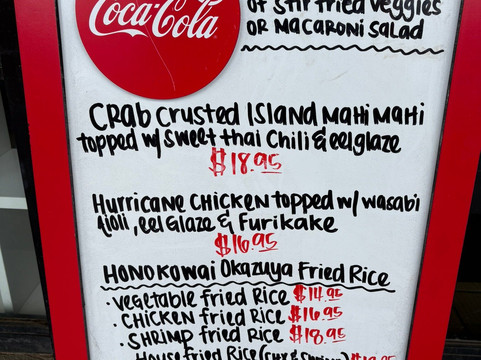 Coca-Cola
of stir fried veggies
or macaroni salad
Crab Crusted Island Mahi Mahi
topped w/ sweet thai chili & eel glaze
$18.95
Hurricane Chicken topped w/ wasabi
aioli, eel glaze & Furikake
$16.95
Honokowai Okazuya Fried Rice
• Vegetable fried Rice $14.95
• Chicken fried Rice $16.95
• Shrimp fried Rice $18.95
House fried Rice